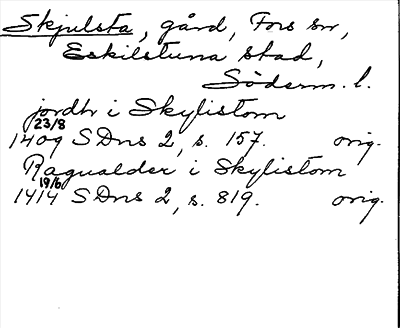 Skjulsta, gård, Fors sn,
Eskilstuna stad,
Söderm. l.
jordh i Skylistom
23/8
1409 SDns 2, s. 157. orig.
Ragualder i Skylistom
19/6
1414 SDns 2, s. 819. orig.